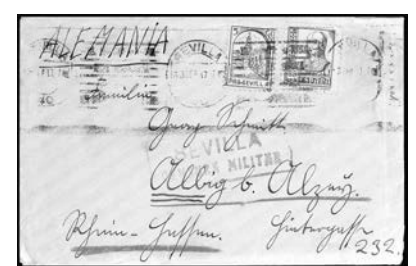 ALEMANIA
SEVILLA
Familie
Georg Schmitt
SEVILLA
MILITAR
Albig b. Alzey.
Rhein-Hessen. Hintergasse
232.